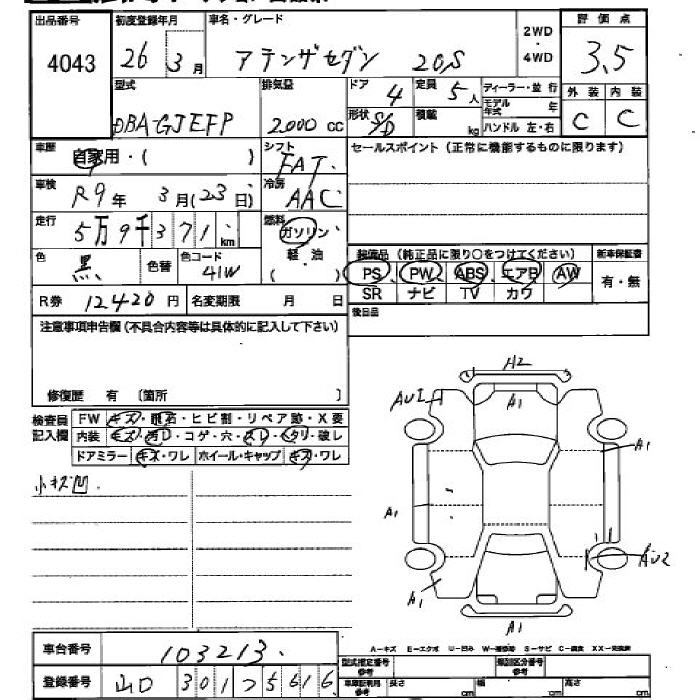 出品番号
4043
初度登録年月
26 3月
車名・グレード
アテンザセダン 20S
2WD
・
4WD
評価点
3.5
型式
DBA-GJEFP
排気量
2000 cc
ドア
4
定員
5人
形状
S/D
積載
kg
ディーラー・並行
モデル年式 年
ハンドル 左・右
外装 内装
C C
車歴
自家用・( )
シフト
FAT
セールスポイント(正常に機能するものに限ります)
車検
R9年 3月(23日)
冷房
AAC
走行
5万9千371km
燃料
ガソリン
軽・油
( )
色
黒
色替
色コード
41W
装備品(純正品に限り○をつけてください)
新車保証書
PS PW ABS エアB AW
有・無
SR ナビ TV カワ
R券 12420円
名変期限 月 日
後日品
注意事項申告欄(不具合内容等は具体的に記入して下さい)
修復歴 有 〔箇所 〕
検査員
記入欄
FW キズ・飛石・ヒビ割・リペア跡・X要
内装 キズ・汚レ・コゲ・穴・スレ・ヘタリ・破レ
ドアミラー キズ・ワレ ホイール・キャップ キズ・ワレ
小キズ凹
A2
A1
A1
A1
A1
A1
車台番号
103213
登録番号
山口 301 ツ 5616
A-キズ E-エクボ U-凹み W-補修跡 S-サビ C-腐食 XX-交換済
型式指定番号
参考
類別区分番号
参考
車庫証明用
参考
長さ cm
幅 cm
高さ cm